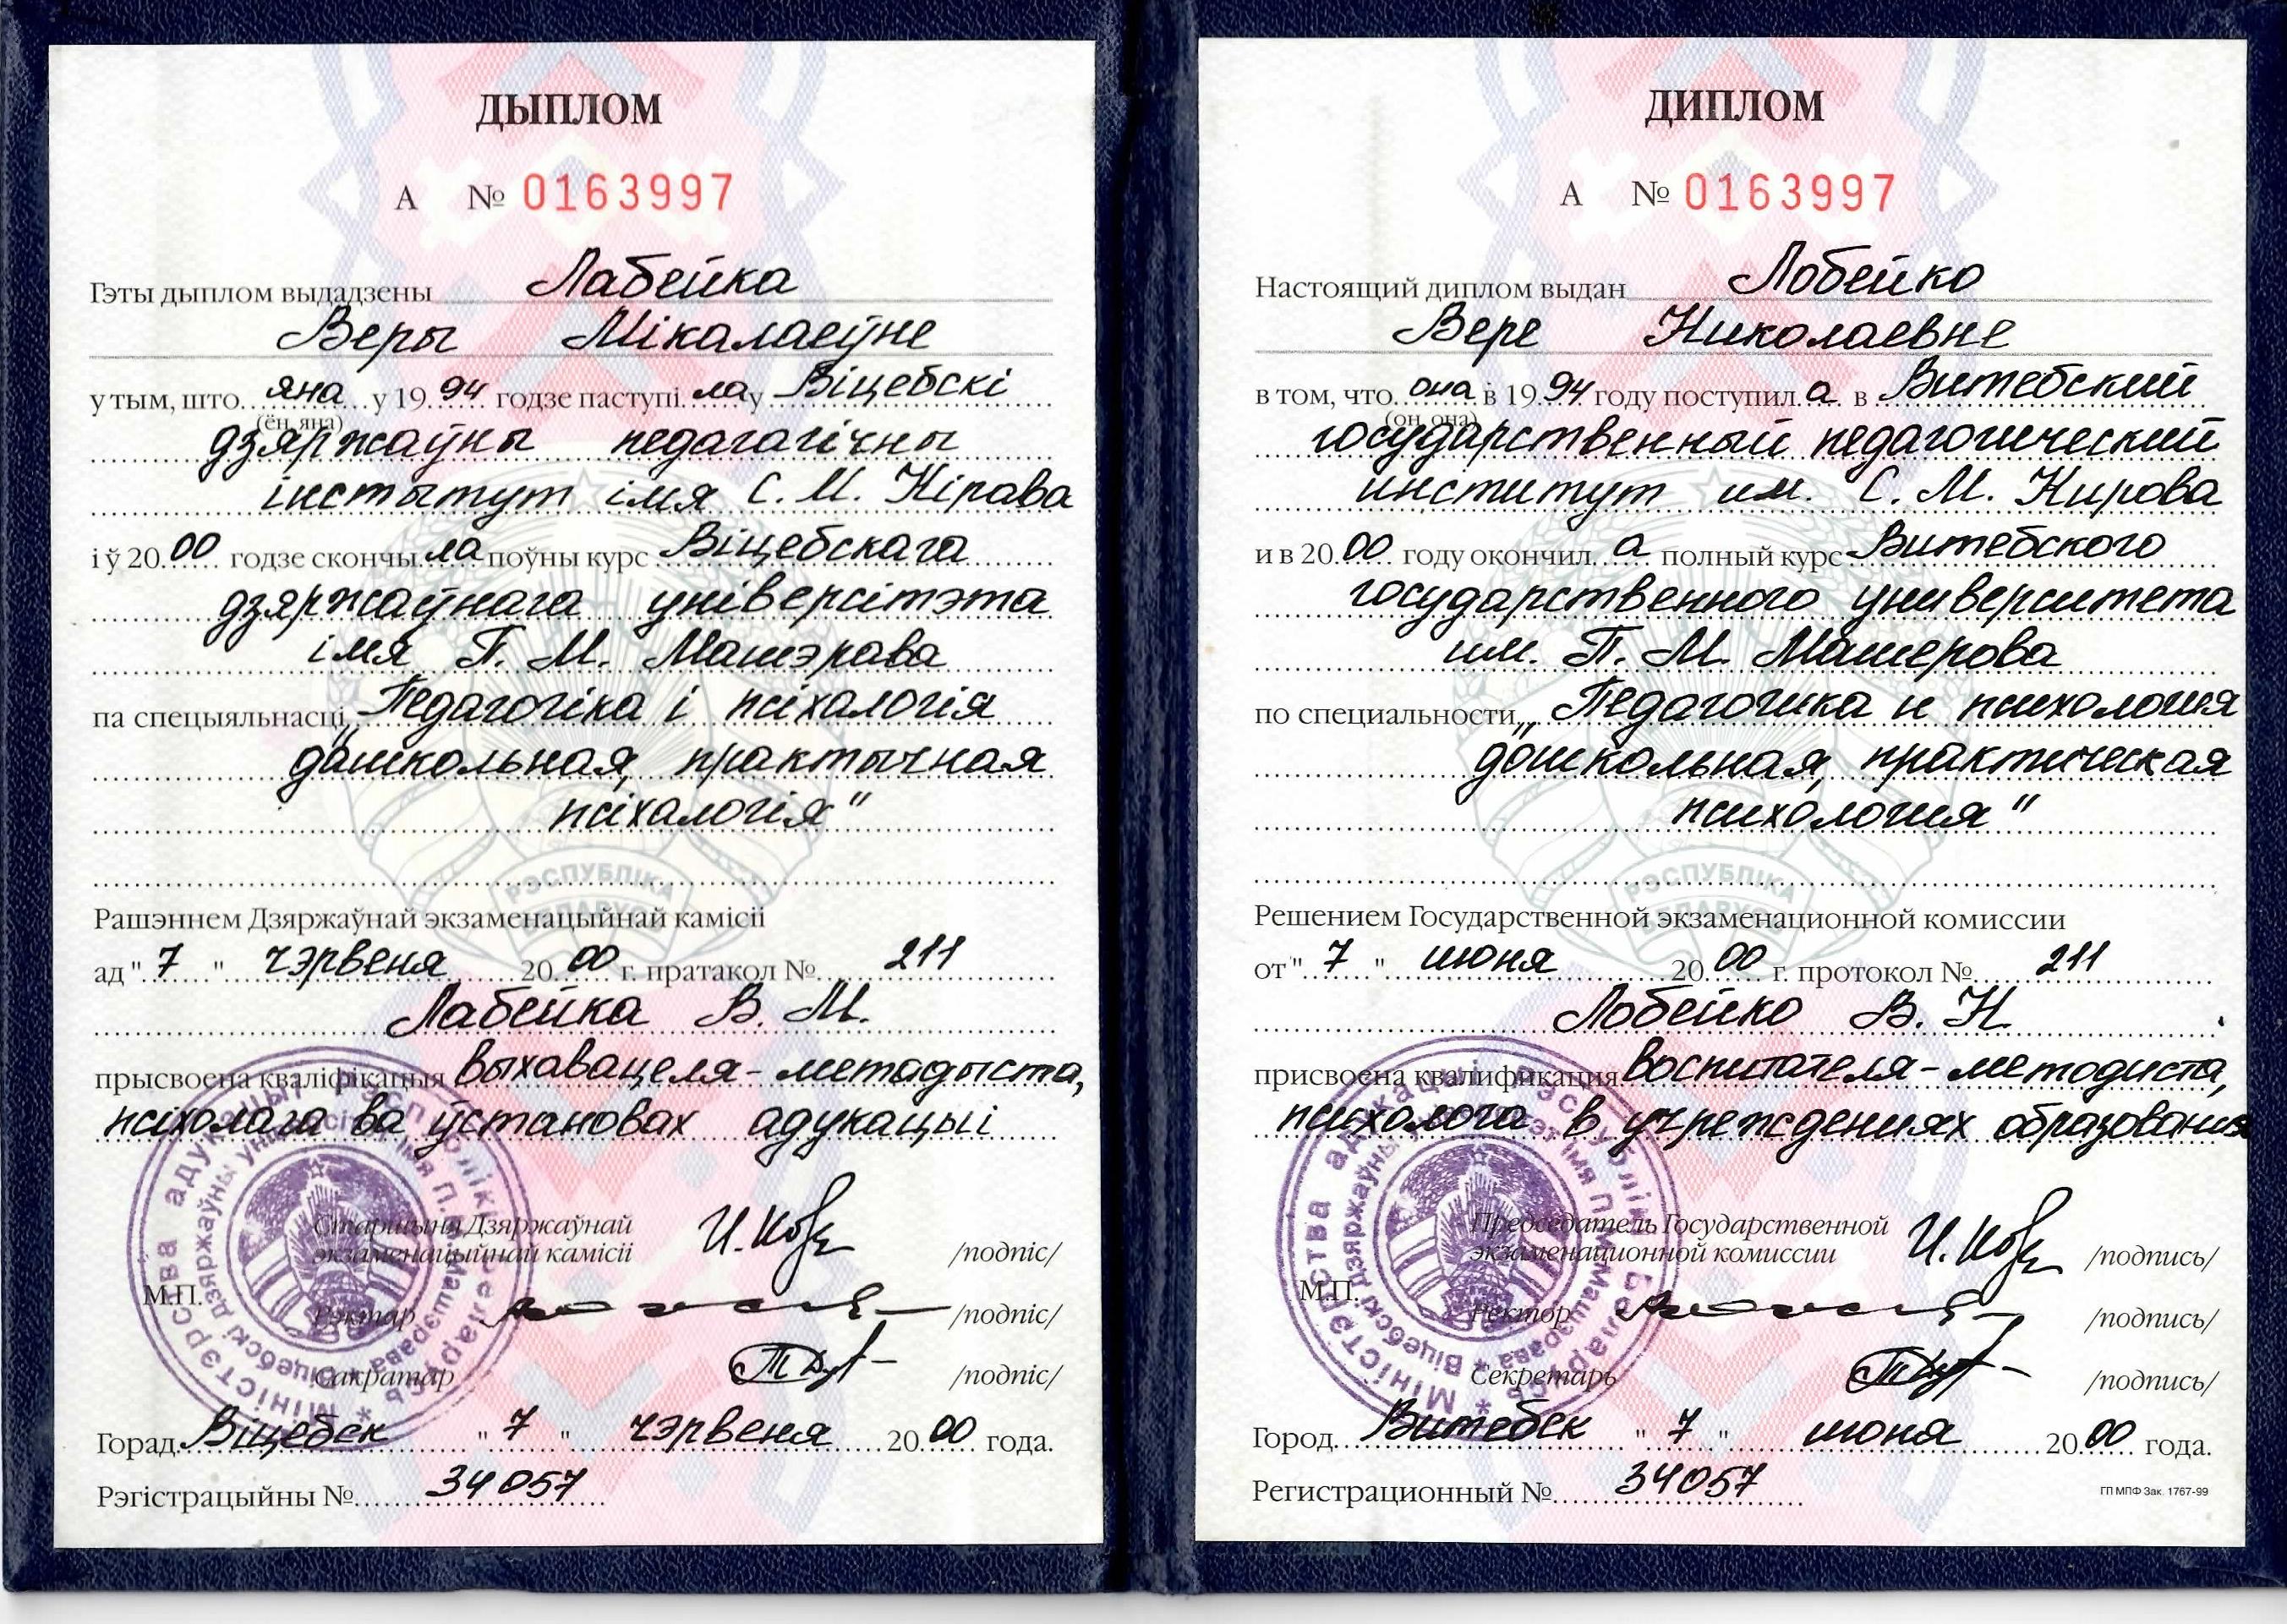 ДЫПЛОМ
А № 0163997
Гэты дыплом выдадзены Лабейка
Веры Мікалаеўне
у тым, што яна у 1994 годзе паступіла у Віцебскі
(ён, яна)
дзяржаўны педагагічны
інстытут імя С. М. Кірава
і ў 2000 годзе скончыла поўны курс Віцебскага
дзяржаўнага універсітэта
імя П. М. Машэрава
па спецыяльнасці „Педагогіка і псіхалогія
дашкольная, практычная
псіхалогія"
РЭСПУБЛІКА
БЕЛАРУСЬ
Рашэннем Дзяржаўнай экзаменацыйнай камісіі
ад "7" чэрвеня 2000 г. пратакол № 211
Лабейка В. М.
прысвоена кваліфікацыя выхавацеля-метадыста,
псіхолага ва ўстановах адукацыі
Старшыня Дзяржаўнай
экзаменацыйнай камісіі /подпіс/
М.П.
Рэктар /подпіс/
Сакратар /подпіс/
Міністэрства адукацыі Рэспублікі Беларусь *
Віцебскі дзяржаўны універсітэт імя П.М. Машэрава *
Горад Віцебск "7" чэрвеня 2000 года.
Рэгістрацыйны № 34057
ДИПЛОМ
А № 0163997
Настоящий диплом выдан Лобейко
Вере Николаевне
в том, что она в 1994 году поступила в Витебский
(он, она)
государственный педагогический
институт им. С. М. Кирова
и в 2000 году окончила полный курс Витебского
государственного университета
им. П. М. Машерова
по специальности „Педагогика и психология
дошкольная, практическая
психология"
РЭСПУБЛІКА
БЕЛАРУСЬ
Решением Государственной экзаменационной комиссии
от "7" июня 2000 г. протокол № 211
Лобейко В. Н.
присвоена квалификация воспитателя-методиста,
психолога в учреждениях образования
Председатель Государственной
экзаменационной комиссии /подпись/
М.П.
Ректор /подпись/
Секретарь /подпись/
Міністэрства адукацыі Рэспублікі Беларусь *
Віцебскі дзяржаўны універсітэт імя П.М. Машэрава *
Город Витебск "7" июня 2000 года.
Регистрационный № 34057
ГП МПФ Зак. 1767-99